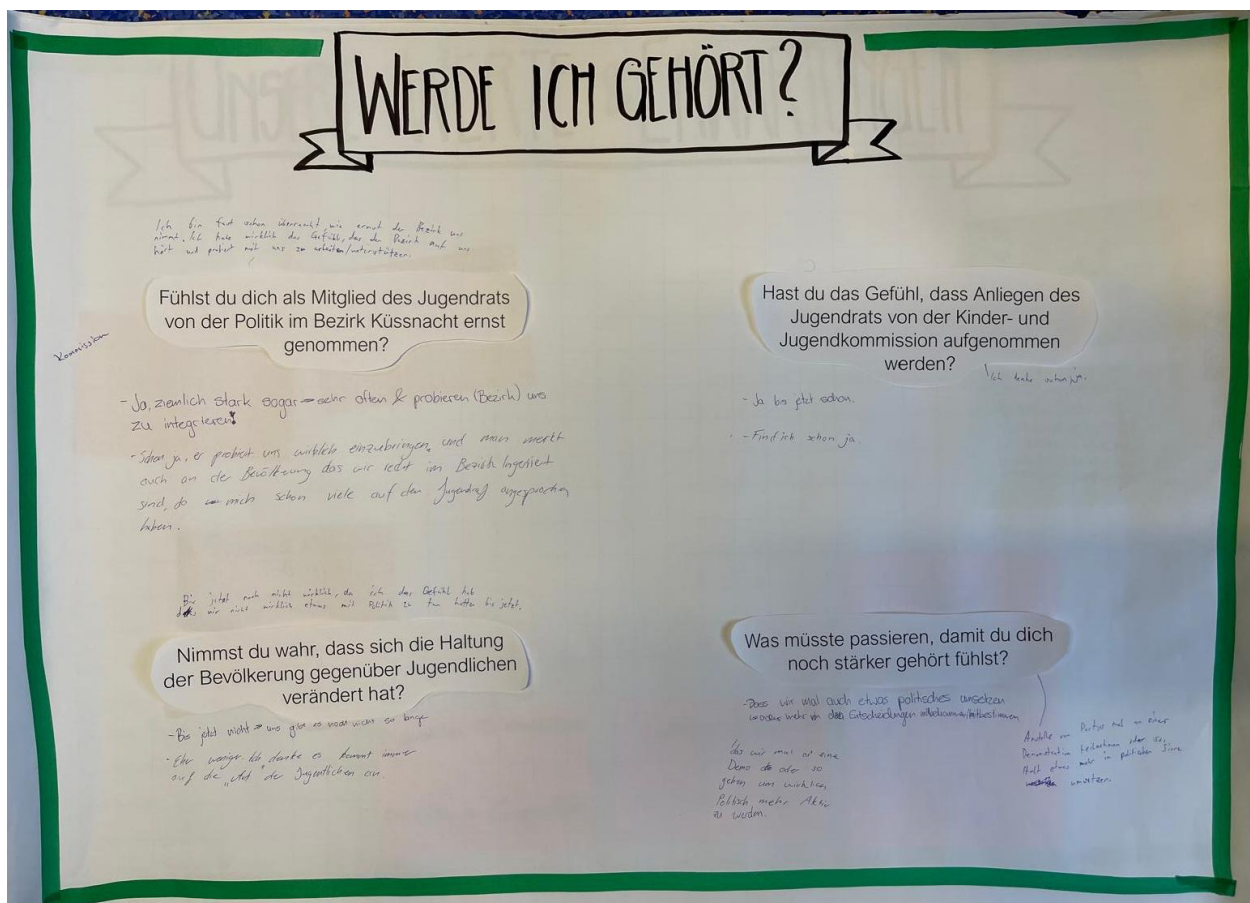 WERDE ICH GEHÖRT?
Ich bin fast schon überrascht, wie ernst der Bezirk uns
nimmt. Ich habe wirklich das Gefühl, das der Bezirk auf uns
hört und probiert mit uns zu arbeiten/unterstützen.
Fühlst du dich als Mitglied des Jugendrats
von der Politik im Bezirk Küssnacht ernst
genommen?
Kommission
- Ja, ziemlich stark sogar → sehr offen & probieren (Bezirk) uns
zu integrieren!
- Schon ja, er probiert uns wirklich einzubringen, und man merkt
auch an der Bevölkerung das wir jetzt im Bezirk
sind, da mich schon viele auf den Jugendrat angesprochen
haben.
Hast du das Gefühl, dass Anliegen des
Jugendrats von der Kinder- und
Jugendkommission aufgenommen
werden?
Ich denke schon ja.
- Ja bis jetzt schon.
- Find ich schon ja.
Bis jetzt noch nicht wirklich, da ich das Gefühl hab
wir nicht wirklich etwas mit Politik zu tun hatten bis jetzt.
Nimmst du wahr, dass sich die Haltung
der Bevölkerung gegenüber Jugendlichen
verändert hat?
- Bis jetzt nicht → uns gibt es noch nicht so lange
- Eher weniger. Ich denke es kommt immer
auf die „Art" der Jugentlichen an.
Was müsste passieren, damit du dich
noch stärker gehört fühlst?
- Dass wir mal auch etwas politisches umsetzen
mehr in den Entscheidungen mitbestimmen
das wir mal an eine
Demo oder so
gehen um wirklich
Politisch mehr Aktiv
zu wurden.
Anstelle von Partys mal an einer
Demonstration teilnehmen oder so.
Halt etwas mehr im politischen Sinne
umsetzen.